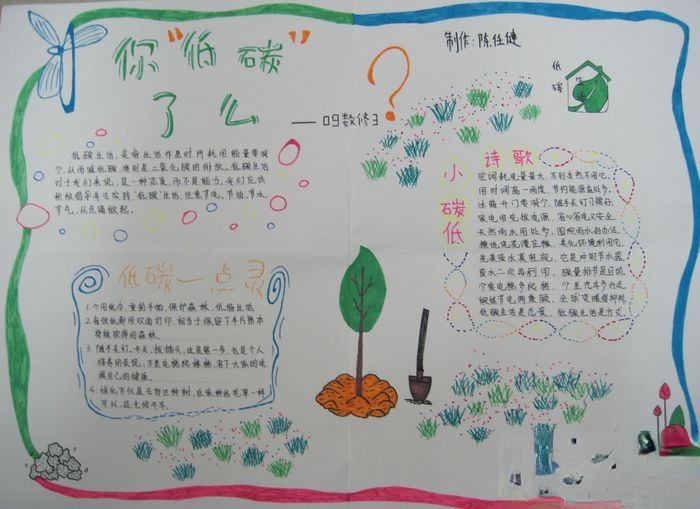 你“低碳”
了么?
——09数修3
制作:陈任健
低碳
生活
低碳生活,是指生活作息时所耗用能量要减
少,从而减低碳,特别是二氧化碳的排放。低碳生活
对于我们来说,是一种态度,而不是能力,我们应该
积极倡导并去实践“低碳”生活,注意节电、节油、节水、
节气,从点滴做起。
低碳一点灵
1.少用纸巾,重拾手帕,保护森林,低脂生活.
2.每张纸都用双面打印,相当于保留下半片原本
将被砍掉的森林.
3.随手关灯、开关、拔插头,这是第一步,也是个人
修养的表现;不坐电梯爬楼梯,省下大家的电
换自己的健康.
4.绿化不仅是去郊区种树,在家种些花草一样
可以,还无须开车.
小碳低
诗歌
空调耗电量最大,不到炎热不用它,
用时调高一两度,节约能源益处多,
冰箱开门要减少,随手关灯习惯好,
家电用完拔电源,省心省电又安全,
天然雨水用处多,囤积雨水好办法,
擦地浇花样样,美化环境利用它,
洗菜接水莫忽视,它是冲厕节水星,
废水二次再利用,减量排节是目的,
少乘电梯多爬梯,少坐汽车多行走
低碳生活是态度,低碳生活是方式